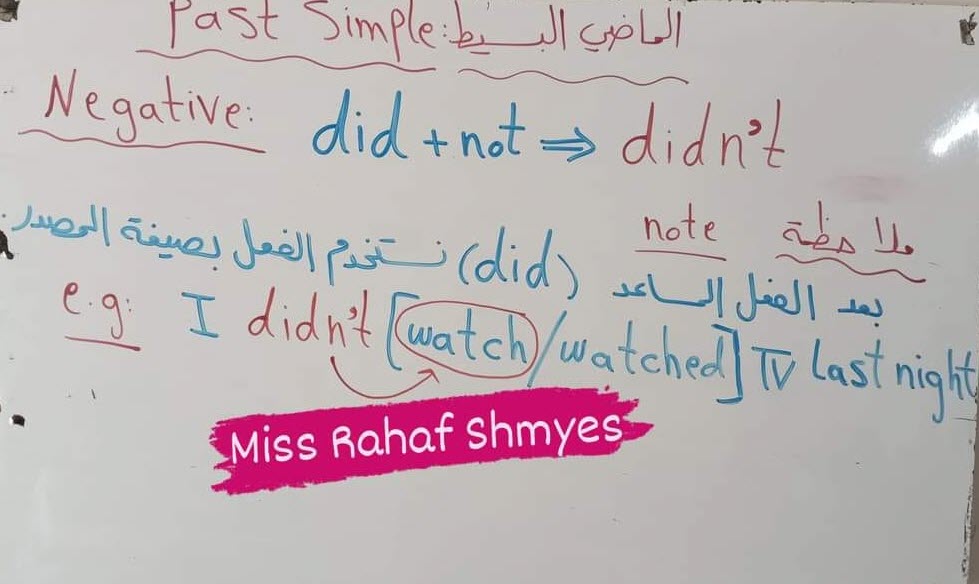 Past Simple: الماضي البسيط
Negative: did + not ⇒ didn't
note ملاحظة
بعد الفعل المساعد (did) نستخدم الفعل بصيغة المصدر.
e.g: I didn't [watch/watched] TV last night
Miss Rahaf Shmyes